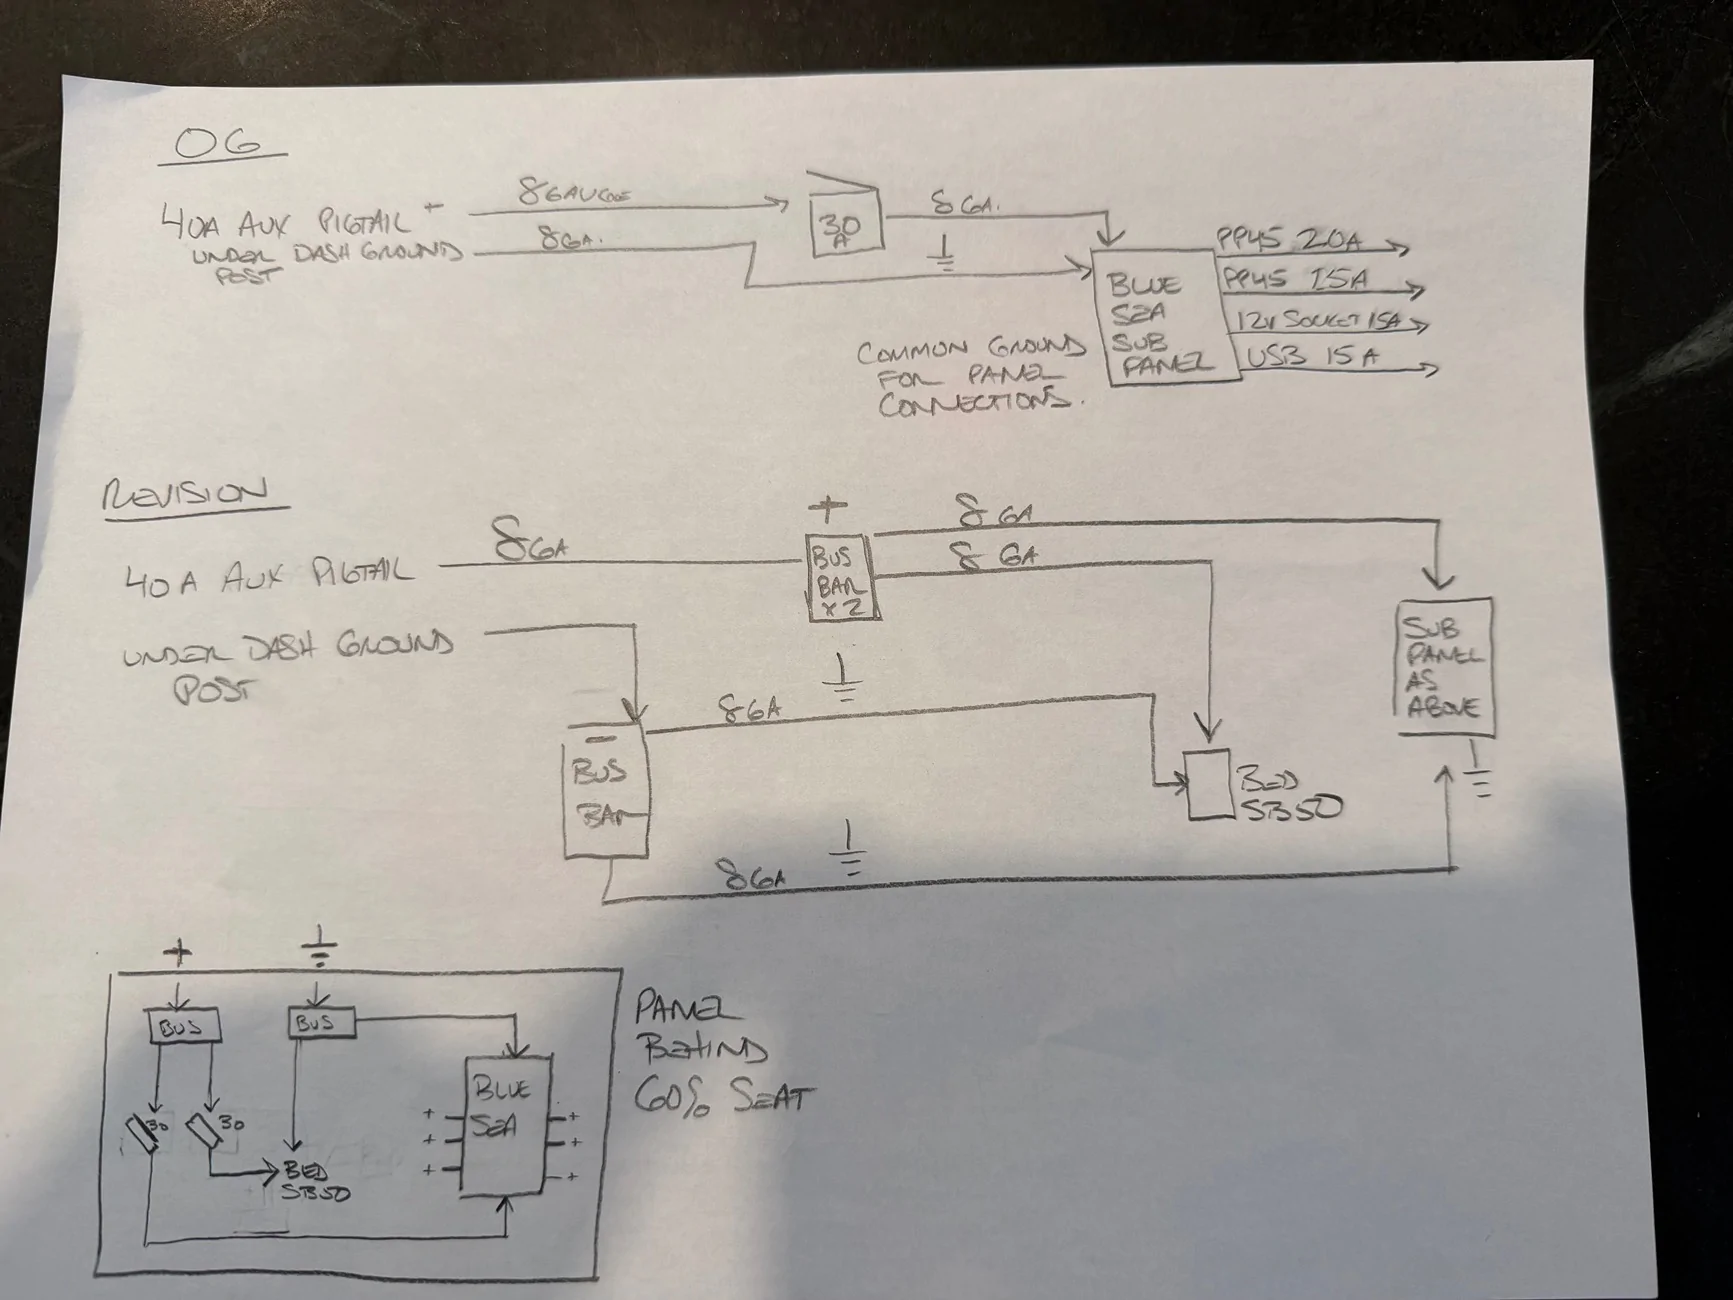 OG
40A AUX PIGTAIL +
8 GAUGE
UNDER DASH GROUND
POST
8 GA.
30
A
8 GA.
BLUE
SEA
SUB
PANEL
PP45 20A
PP45 15A
12V SOCKET 15A
USB 15A
COMMON GROUND
FOR PANEL
CONNECTIONS.
REVISION
40A AUX PIGTAIL
8 GA
+
BUS
BAR
x 2
8 GA
8 GA
SUB
PANEL
AS
ABOVE
UNDER DASH GROUND
POST
–
BUS
BAR
8 GA
BED
SB50
8 GA
+
BUS
BUS
30
30
BED
SB50
BLUE
SEA
+ +
+ +
+ +
PANEL
BEHIND
60% SEAT